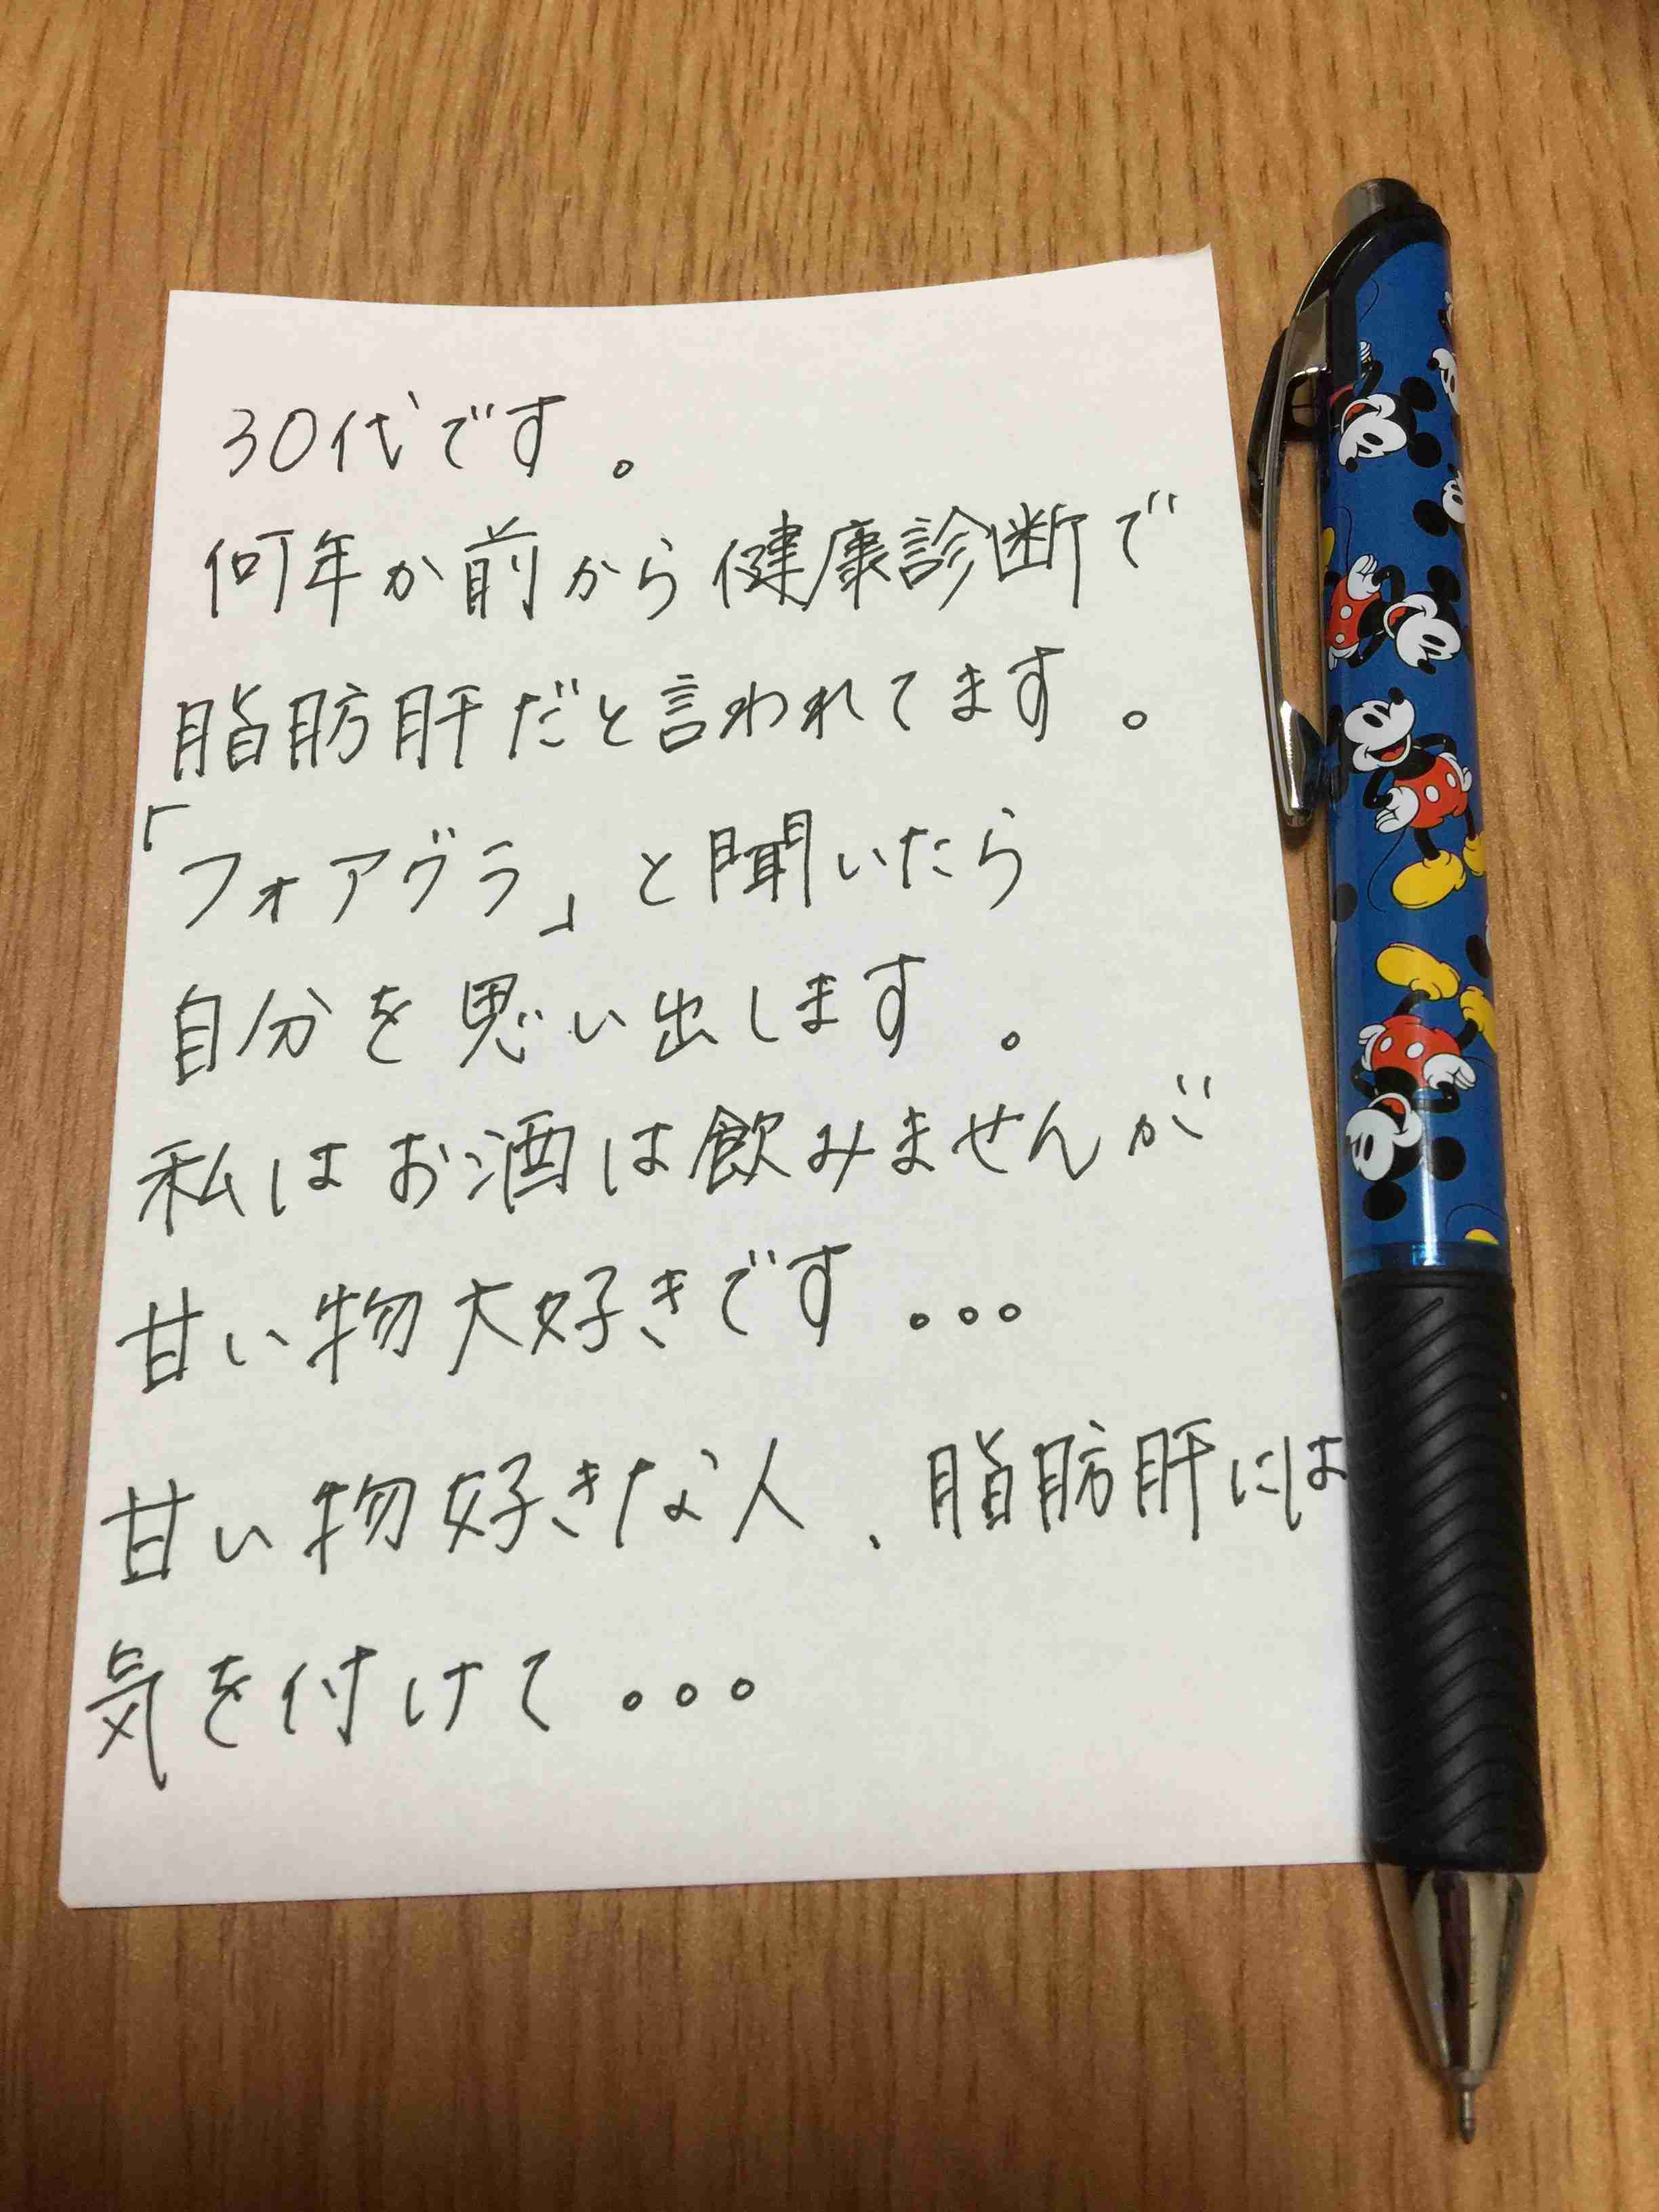 30代です。
何年か前から健康診断で
脂肪肝だと言われてます。
「フォアグラ」と聞いたら
自分を思い出します。
私はお酒は飲みませんが
甘い物大好きです。。。
甘い物好きな人、脂肪肝には
気を付けて。。。